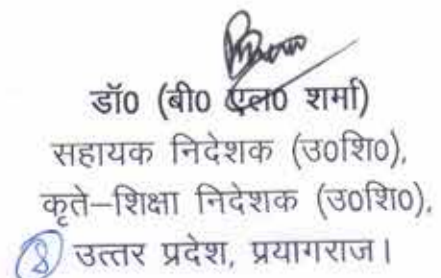 डॉ0 (बी0 एल0 शर्मा)
सहायक निदेशक (उ0शि0),
कृते–शिक्षा निदेशक (उ0शि0),
उत्तर प्रदेश, प्रयागराज।